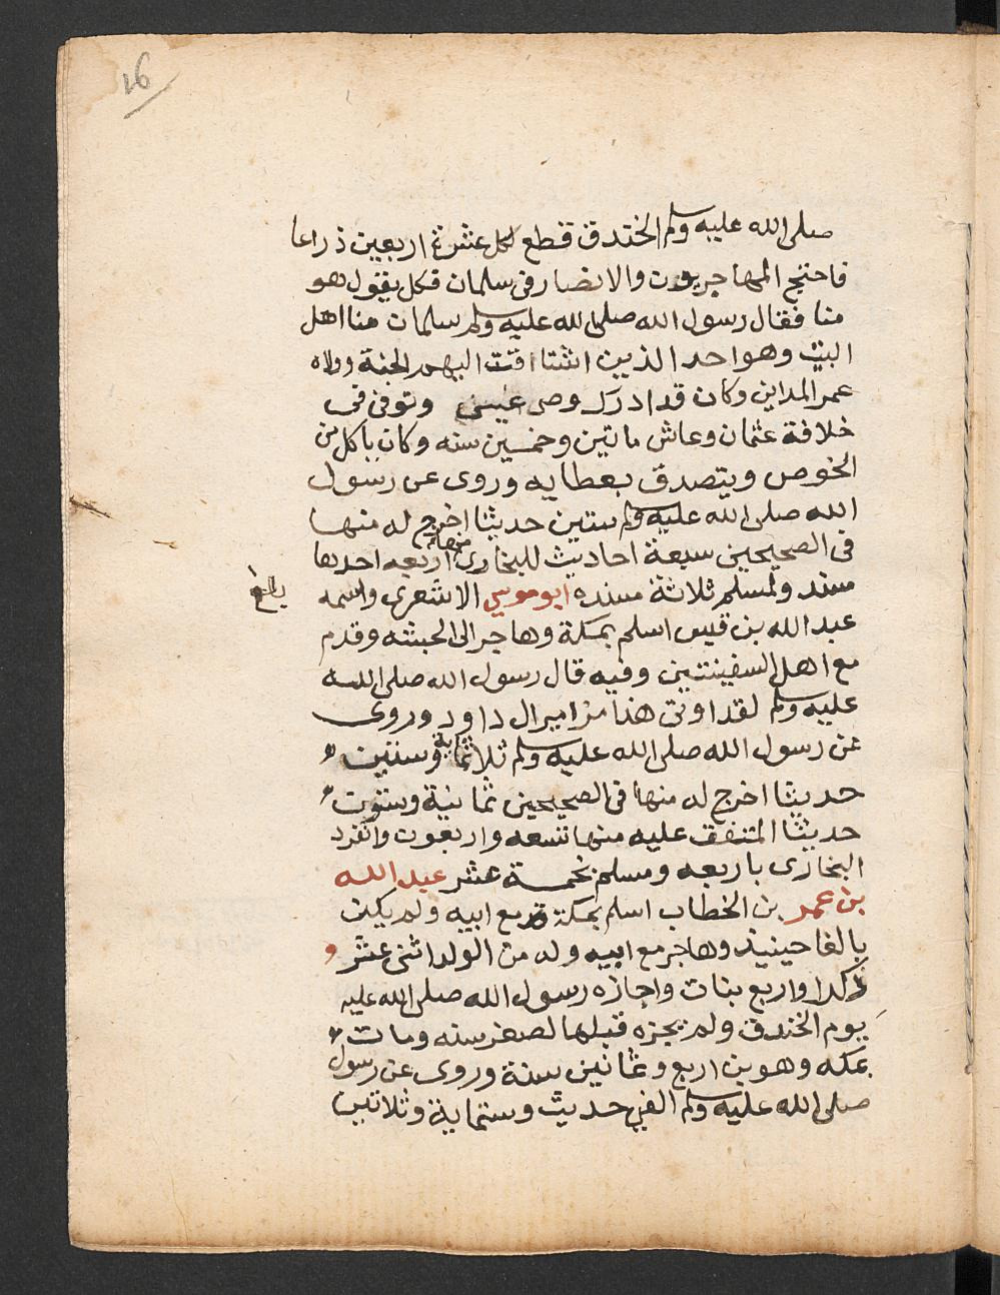 16
صلى الله عليه وسلم الخندق قطع لكل عشرة اربعين ذراعا
فاحتج المهاجريون والانصار فى سلمان فكل يقول هو
منا فقال رسول الله صلى الله عليه وسلم سلمان منا اهل
البيت وهو احد الذين اشتاقت اليهم الجنة وولاه
عمر المداين وكان قد ادرك وصى عيسى وتوفى فى
خلافة عثمان وعاش مائتين وخمسين سنه وكان ياكل من
الخوص ويتصدق بعطايه وروى عن رسول
الله صلى الله عليه وسلم ستين حديثا اخرج له منها
فى الصحيحين سبعة احاديث للبخارى منها اربعه احدها
مسند ولمسلم ثلاثة مسنده ابو موسي الاشعرى واسمه
بلغ
عبد الله بن قيس اسلم بمكة وهاجر الى الحبشه وقدم
مع اهل السفينتين وفيه قال رسول الله صلى الله
عليه وسلم لقد اوتى هذا مزامير ال داود وروى
عن رسول الله صلى الله عليه وسلم ثلاثماية وستين
حديثا اخرج له منها فى الصحيحين ثمانية وستون
حديثا المتفق عليه منها تسعه واربعون وانفرد
البخارى باربعه ومسلم بخمسة عشر عبد الله
بن عمر بن الخطاب اسلم بمكة مع ابيه ولم يكن
بالغا حينيذ وهاجر مع ابيه وله من الولد اثنى عشر
ذكرا واربع بنات واجازه رسول الله صلى الله عليه
يوم الخندق ولم يجزه قبلها لصغر سنه ومات
بمكه وهو بن اربع وثمانين سنة وروى عن رسول
صلى الله عليه وسلم الفى حديث وستماية وثلاثين